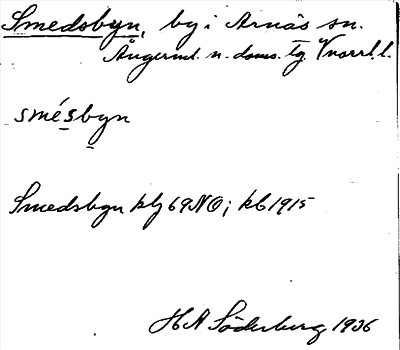 Smedsbyn, by i Arnäs sn.
Ångerml. n. doms. tg. Vnorrl. l.
smésbyn
Smedsbyn kbl 69NO; kb 1915
H A Söderberg 1936